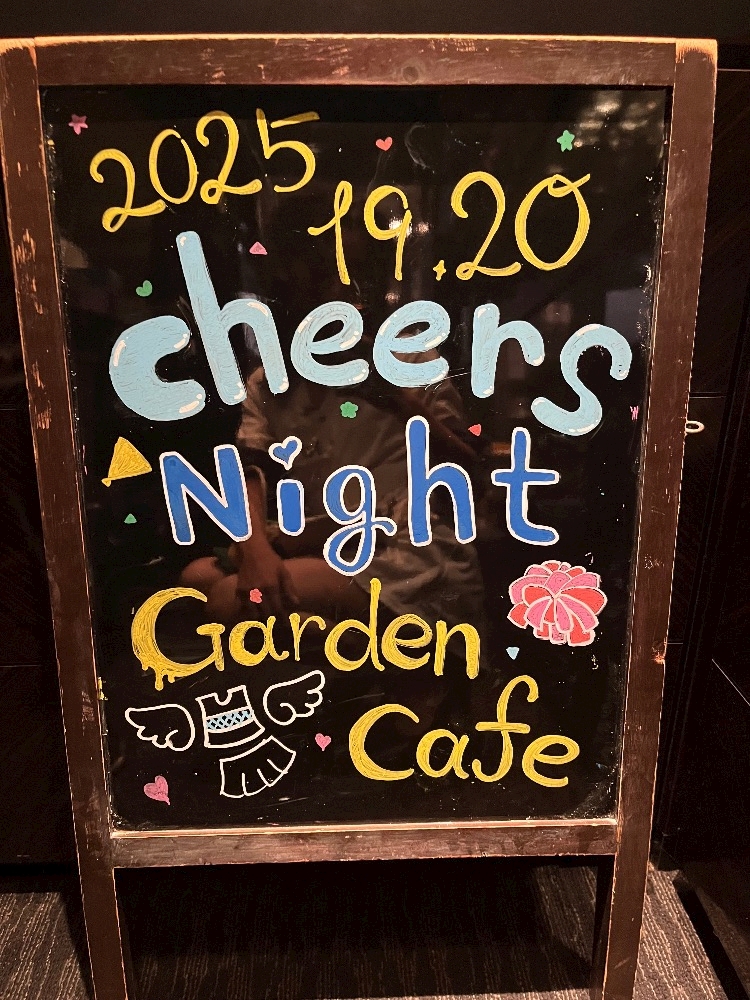 2025
19.20
cheers
Night
Garden
Cafe